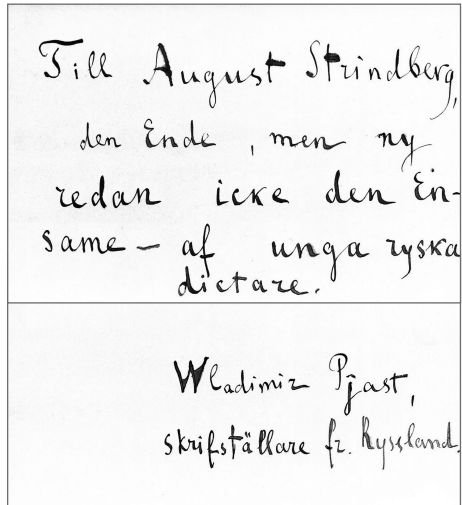 Till August Strindberg,
den Ende, men ny
redan icke den En-
same – af unga ryska
dictare.
Wladimir Pjast,
skrifställare fr. Ryssland.